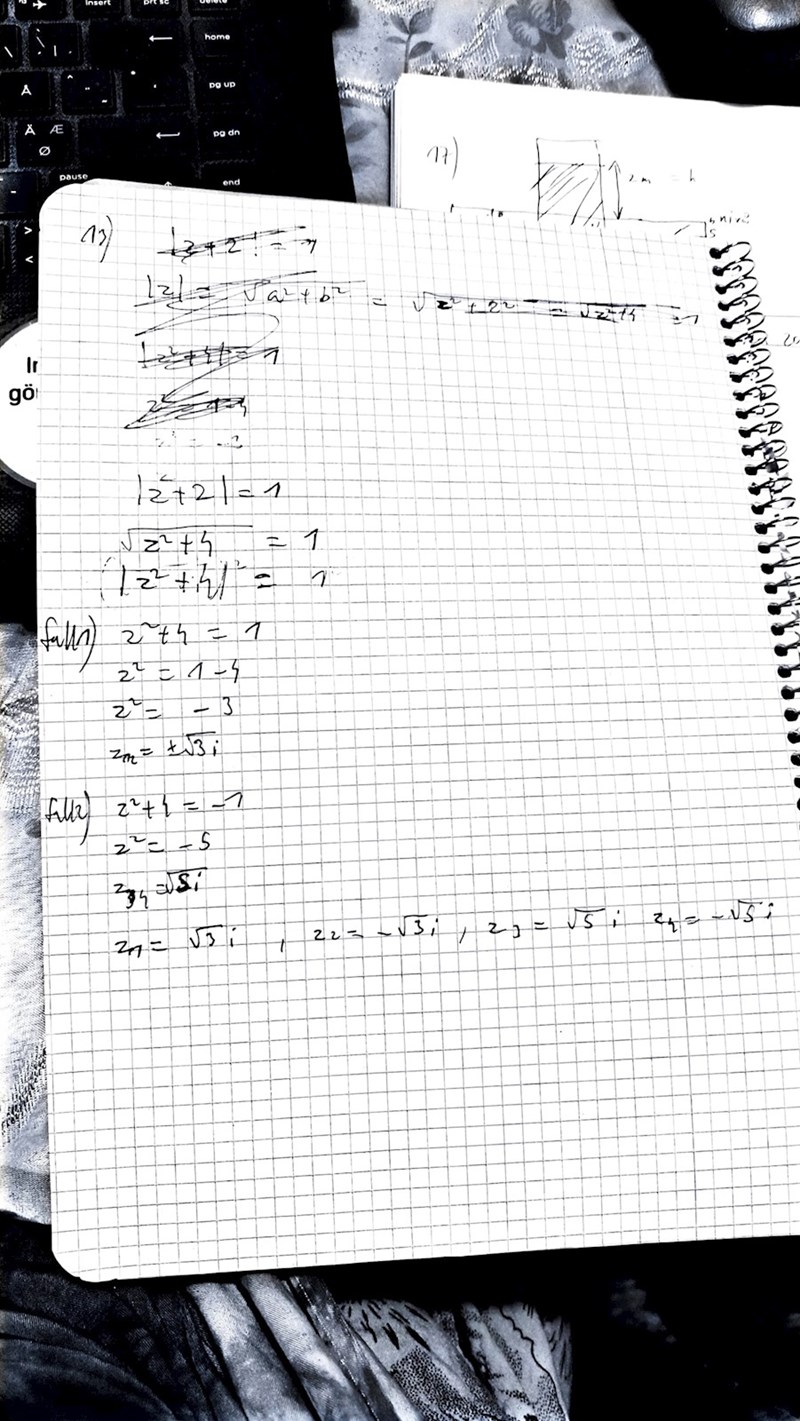 insert
prt sc
delete
home
pg up
Å
Ä Æ
Ø
pg dn
pause
end
17)
2m = h
13)
|z+2| = 1
|z| = √a²+b² = √z²+2² = √z²+4 = 1
|z²+4| = 1
|z+2| = 1
√z²+4 = 1
|z²+4|² = 1
fall1) z²+4 = 1
z² = 1-4
z² = -3
= ±√3 i
fall2) z²+4 = -1
z² = -5
= √5 i
z1 = √3 i , z2 = -√3 i , z3 = √5 i z4 = -√5 i